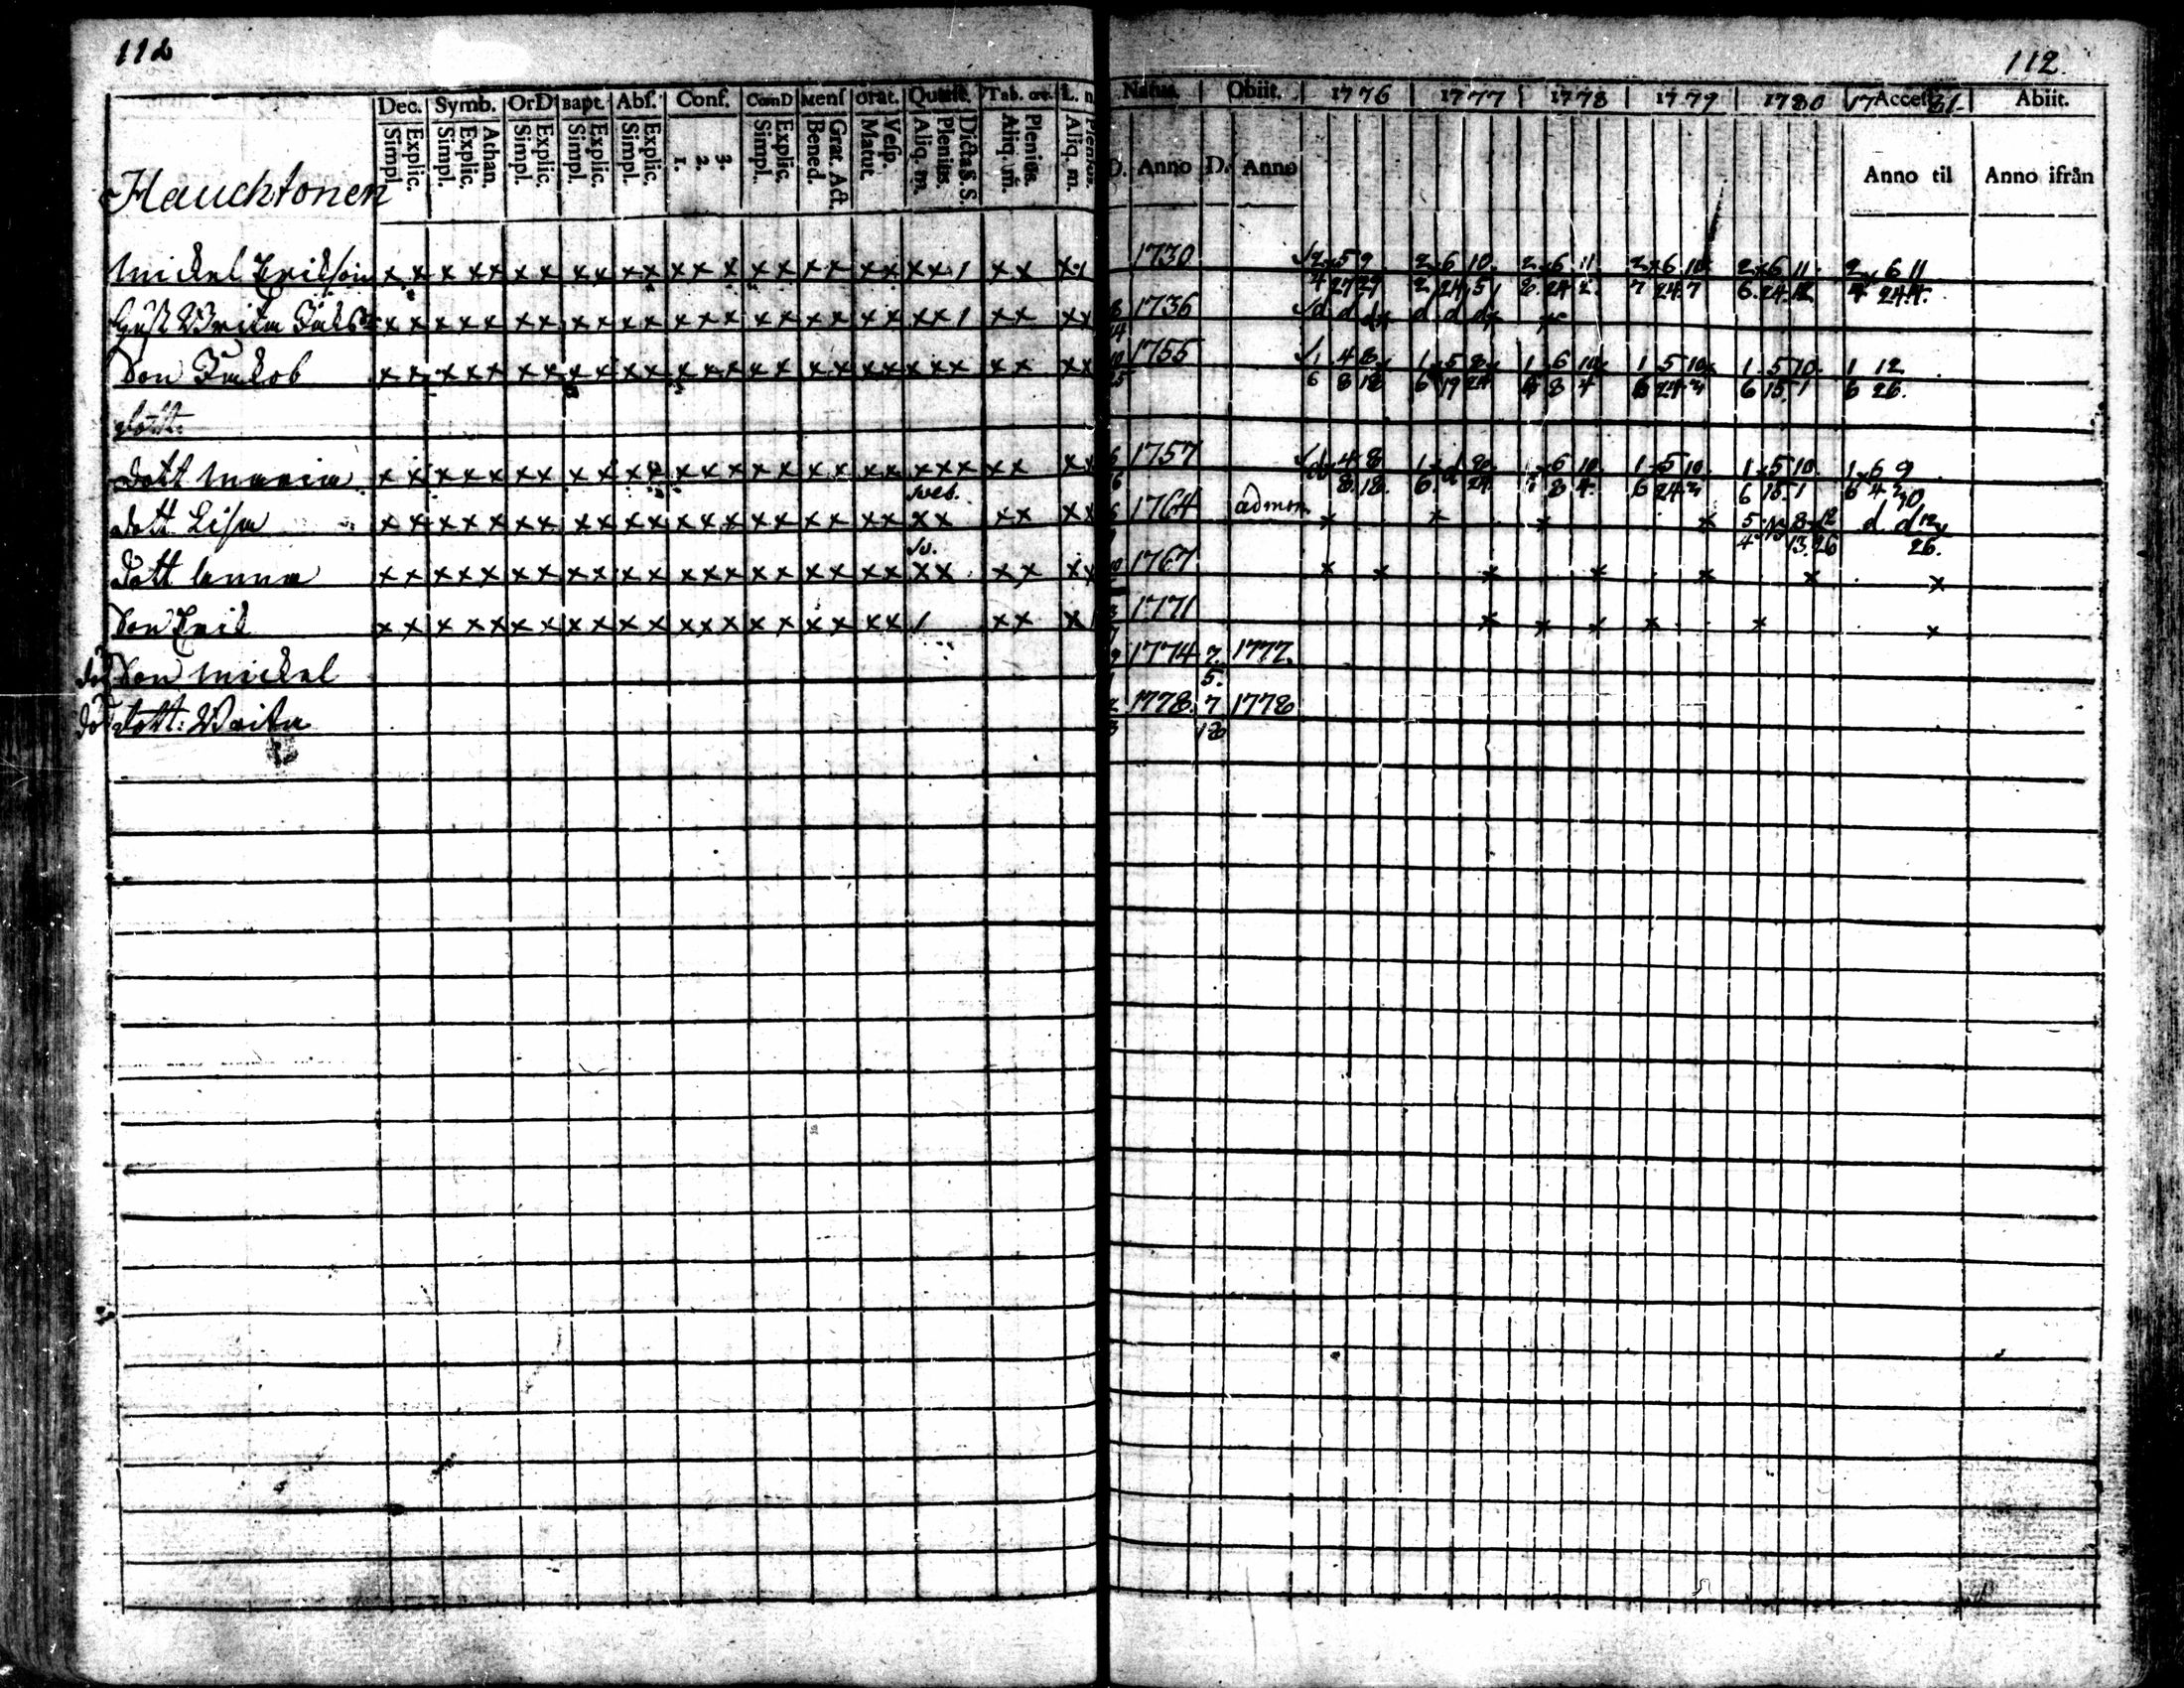 112 112.
Dec. Symb. OrD Bapt. Abs. Conf. ComD Mens Orat. Quæst. Tab. œc. L. n Natus. Obiit. 1776 1777 1778 1779 1780 17 Access. 81. Abiit.
Explic. Simpl. Athan. Explic. Simpl. Explic. Simpl. Explic. Simpl. Explic. Simpl. 3. 2. 1. Explic. Simpl. Grat. Act. Bened. Vesp. Matut. Dicta S. S. Plenius. Aliq. m. Plenius. Aliq. m. Aliq. m. D. Anno D. Anno Anno til Anno ifrån
Hauchtonen
Mickel Erikson x x x x x x x x x x x x x x x x x x x x x 1 x x x 1 1730 2 x 5 9 2 x 6 10. 2 x 6 11 2 x 6 10 2 x 6 11. 2 x 6 11
4 27 29 2 24 5 8. 24 2. 7 24. 7 6. 24. 12 4 24. 4.
Hust Brita x x x x x x x x x x x x x x x x x x x x x 1 x x x x 1736 d d d x d d d x x
Son Jakob x x x x x x x x x x x x x x x x x x x x x x x x x x 1755 1 4 8 1 x 5 8 x 1 x 6 10 x 1 5 10 x 1. 5 10. 1 12
6 8 18 6 19 24 6 8 4 6 24. 3 6 15. 1 6 26.
dott.
dott Maria x x x x x x x x x x x x x x x x x x x x x x x x x x 1757 d x 4 8 1 x d 8 x 6 10 1 x 5 10 1 x 5 10. 1 x 6 9
8. 18. 6. 24. 8 4. 6 24. 3 6 15. 1 6 4 30
dott Lisa x x x x x x x x x x x x x x x x x x x x x x x x x 1764 admon. x x x x 5 8 12 d. d 12 x
4 13. 26 26.
dott Anna x x x x x x x x x x x x x x x x x x x x x x x x x 1767 x x x x x x x
Son Erik x x x x x x x x x x x x x x x x x x x 1 x x x 1771 x x x x x x
död Son Mickel 1774 7. 1777.
5.
död dott: Brita 1778. 7 1778
18